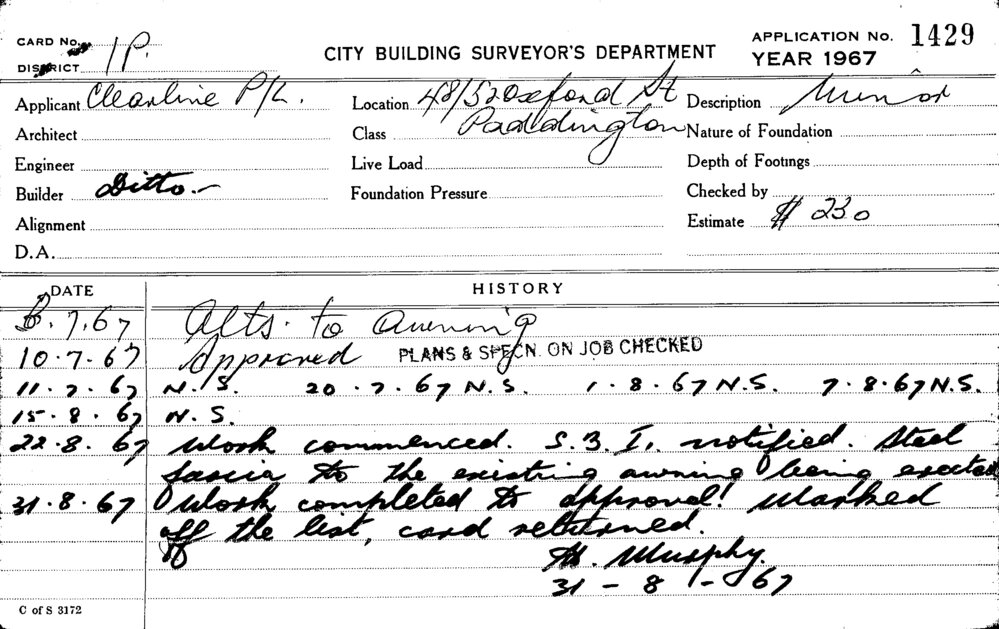 CARD No.
DISTRICT 1P.
CITY BUILDING SURVEYOR'S DEPARTMENT
APPLICATION No. 1429
YEAR 1967
Applicant Clearline P/L. Location 48/52 Oxford St Description Minor
Architect Class Paddington Nature of Foundation
Engineer Live Load Depth of Footings
Builder Ditto.- Foundation Pressure Checked by
Alignment Estimate $ 230
D.A.
DATE HISTORY
.7.67 Alts. to Awning
10.7.67 Approved PLANS & SPECN. ON JOB CHECKED
11.7.67 N.S. 20.7.67 N.S. 1.8.67 N.S. 7.8.67 N.S.
15.8.67 N.S.
22.8.67 Work commenced. S.B.I. notified. Steel
fascia to the existing awning being erected
31.8.67 Work completed to approval! Marked
off the list, card returned.
Murphy.
31-8-67
C of S 3172